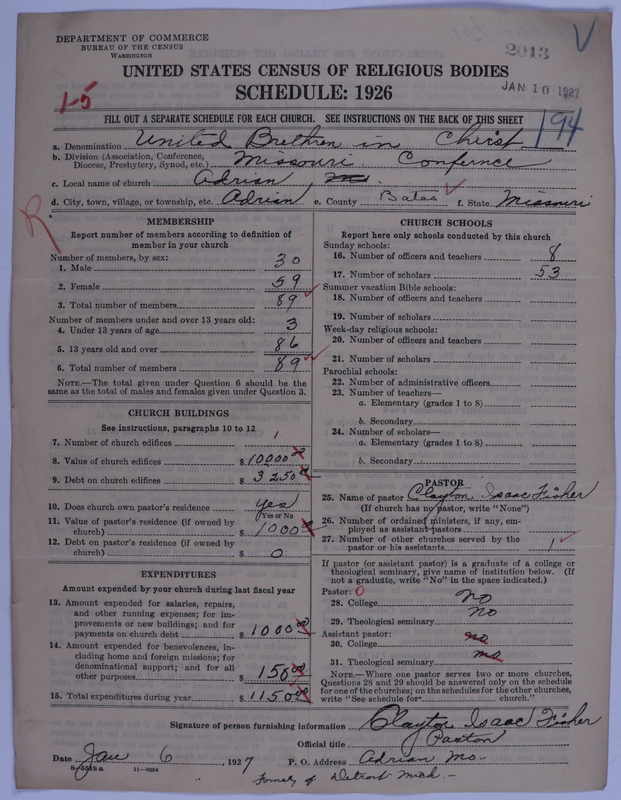 DEPARTMENT OF COMMERCE
BUREAU OF THE CENSUS
WASHINGTON
2013
V
UNITED STATES CENSUS OF RELIGIOUS BODIES
SCHEDULE: 1926
JAN 10 1927
1-5
FILL OUT A SEPARATE SCHEDULE FOR EACH CHURCH. SEE INSTRUCTIONS ON THE BACK OF THIS SHEET
194
a. Denomination United Brethren in Christ
b. Division (Association, Conference, Diocese, Presbytery, Synod, etc.) Missouri Confernce
c. Local name of church Adrian
d. City, town, village, or township, etc. Adrian e. County Bates f. State Missouri
R
MEMBERSHIP
Report number of members according to definition of
member in your church
Number of members, by sex:
1. Male 30
2. Female 59
3. Total number of members 89
Number of members under and over 13 years old:
4. Under 13 years of age 3
5. 13 years old and over 86
6. Total number of members 89
NOTE.—The total given under Question 6 should be the
same as the total of males and females given under Question 3.
CHURCH BUILDINGS
See instructions, paragraphs 10 to 12
7. Number of church edifices 1
8. Value of church edifices $10000 00
9. Debt on church edifices $3250
10. Does church own pastor's residence yes
(Yes or No)
11. Value of pastor's residence (if owned by
church) $1000
12. Debt on pastor's residence (if owned by
church) $0
EXPENDITURES
Amount expended by your church during last fiscal year
13. Amount expended for salaries, repairs,
and other running expenses; for im-
provements or new buildings; and for
payments on church debt $1000 00
14. Amount expended for benevolences, in-
cluding home and foreign missions; for
denominational support; and for all
other purposes $150 00
15. Total expenditures during year $1150 00
CHURCH SCHOOLS
Report here only schools conducted by this church
Sunday schools:
16. Number of officers and teachers 8
17. Number of scholars 53
Summer vacation Bible schools:
18. Number of officers and teachers
19. Number of scholars
Week-day religious schools:
20. Number of officers and teachers
21. Number of scholars
Parochial schools:
22. Number of administrative officers
23. Number of teachers—
a. Elementary (grades 1 to 8)
b. Secondary
24. Number of scholars—
a. Elementary (grades 1 to 8)
b. Secondary
PASTOR
25. Name of pastor Clayton Isaac Fisher
(If church has no pastor, write "None")
26. Number of ordained ministers, if any, em-
ployed as assistant pastors
27. Number of other churches served by the
pastor or his assistants 1
If pastor (or assistant pastor) is a graduate of a college or
theological seminary, give name of institution below. (If
not a graduate, write "No" in the space indicated.)
Pastor: 0
28. College no
29. Theological seminary no
Assistant pastor:
30. College no
31. Theological seminary no
NOTE.—Where one pastor serves two or more churches,
Questions 28 and 29 should be answered only on the schedule
for one of the churches; on the schedules for the other churches,
write "See schedule for church."
Signature of person furnishing information Clayton Isaac Fisher
Official title Pastor
Date Jan 6, 1927 P. O. Address Adrian Mo-
8-5518a 11-9054
Formely of Detroit Mich.-